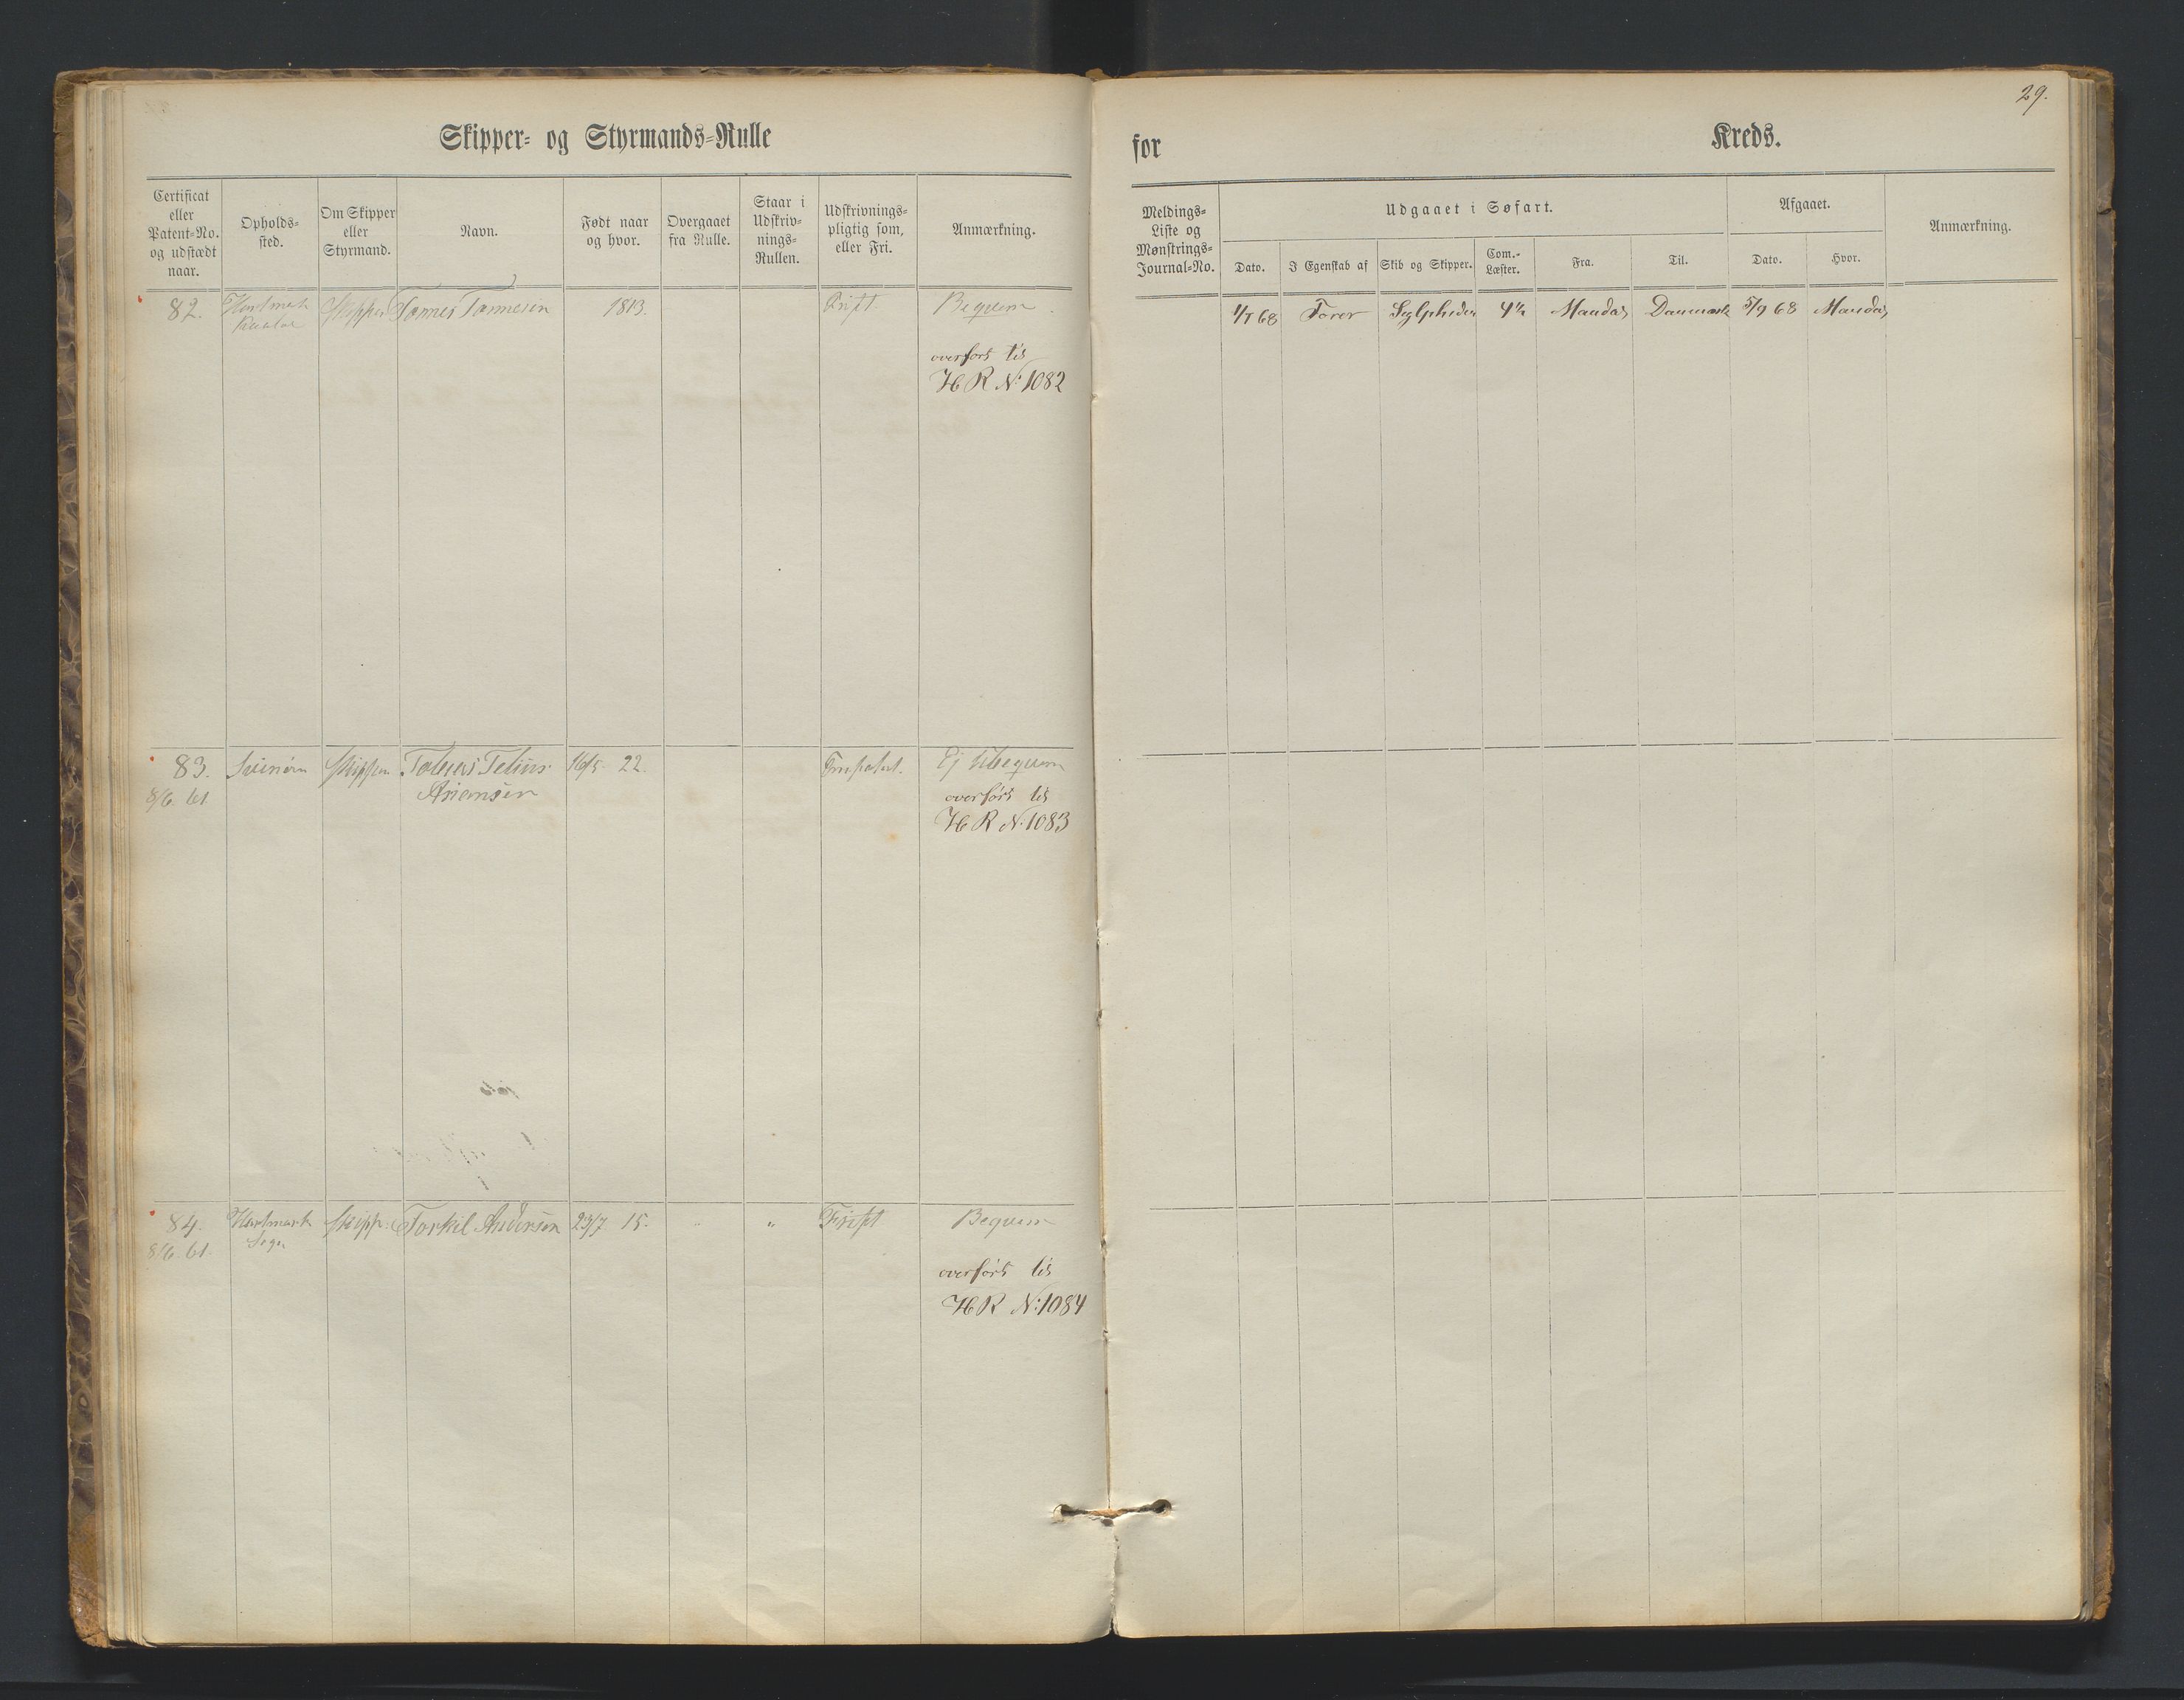 29.
Skipper- og Styrmands-Rulle
for Kreds.
Certificat eller Patent-No. og udstædt naar.
Opholds-sted.
Om Skipper eller Styrmand.
Navn.
Født naar og hvor.
Overgaaet fra Rulle.
Staar i Udskriv-nings-Rullen.
Udskrivnings-pligtig som, eller Fri.
Anmærkning.
Meldings-Liste og Mønstrings-Journal-No.
Udgaaet i Søfart.
Dato.
I Egenskab af
Skib og Skipper.
Com.-Læster.
Fra.
Til.
Afgaaet.
Dato.
Hvor.
Anmærkning.
82. Skipper Tønnes Tønnesen 1813. Bequem
overført til
HR N: 1082
68 Fører Sylphiden Mandal Danmark 5/9 68 Mandal
83. Svinøen Skipper 16/5 22. Ej Ubequem
8/6 61
overført til
HR N: 1083
84. Hartmark Skipp: Torkil Andersen 23/7 15. " Bequem
8/6. 61.
overført til
HR N: 1084